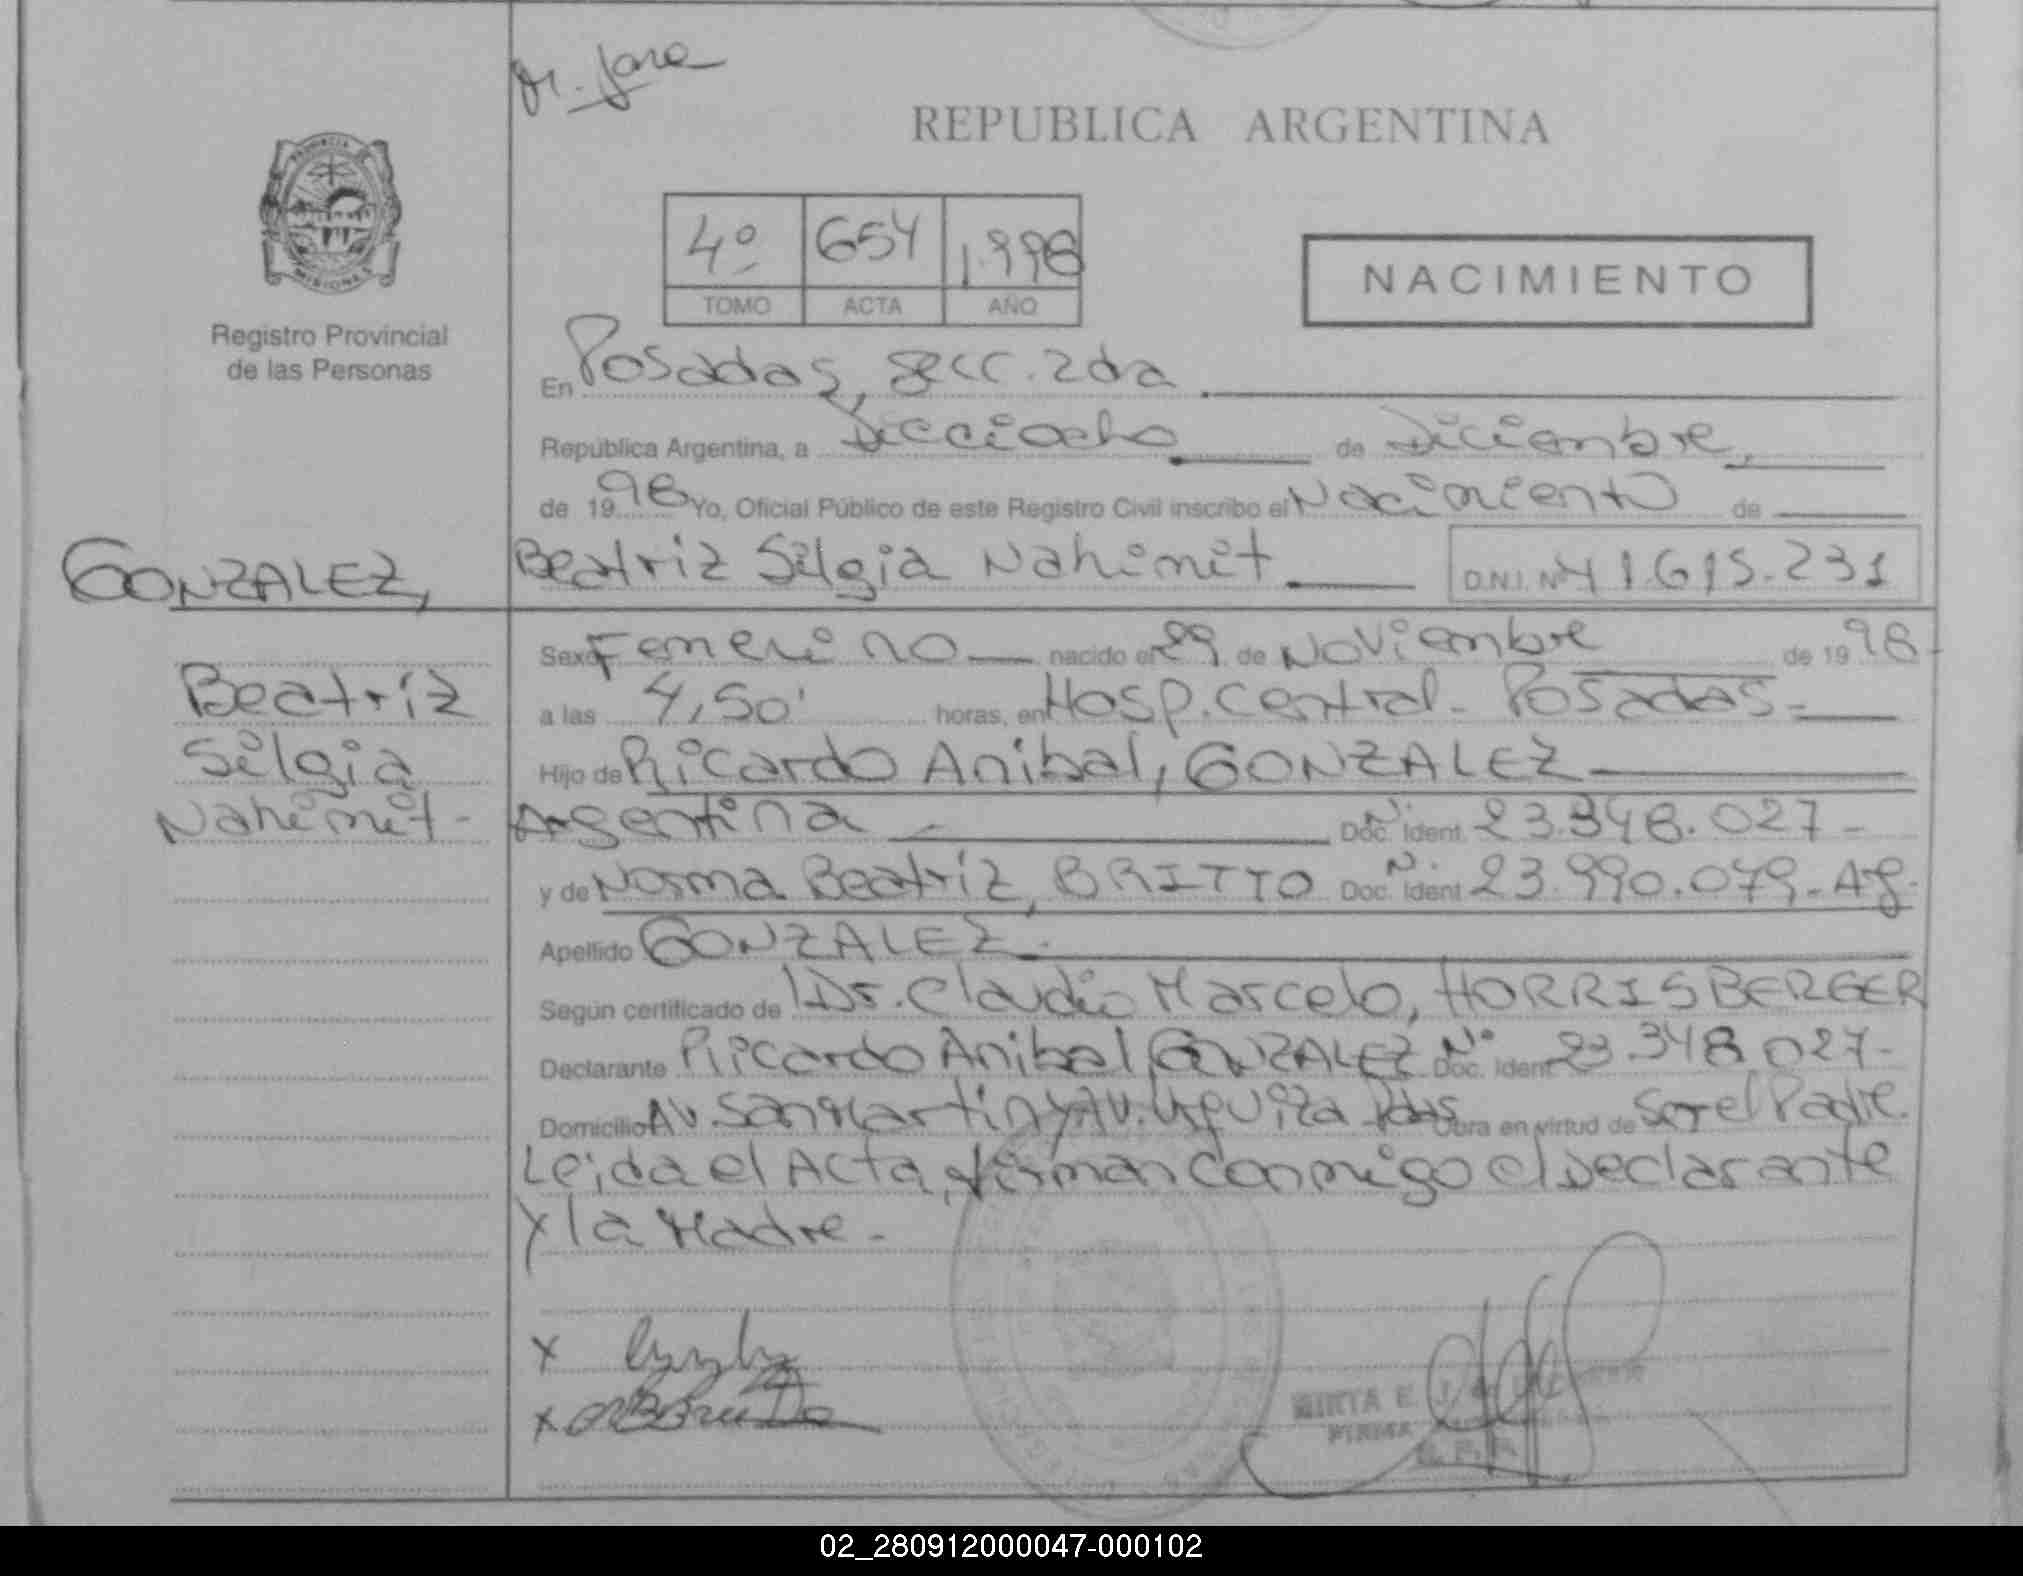 REPUBLICA ARGENTINA
4º 654 1.998
TOMO ACTA AÑO
NACIMIENTO
Registro Provincial
de las Personas
En Posadas, secc. 2da
República Argentina, a Dieciocho de Diciembre,
de 1998 Yo, Oficial Público de este Registro Civil inscribo el Nacimiento de
GONZALEZ,
Beatriz Silgia Nahimit D.N.I. Nº 41.615.231
Beatriz
Silgia
Nahimit-
Sexo Femenino nacido el 29 de Noviembre de 1998-
a las 4,50' horas, en Hosp. Central - Posadas-
Hijo de Ricardo Anibal, GONZALEZ
Argentina Doc. Ident. Nº 23.348.027-
y de Norma Beatriz, BRITTO Doc. Ident Nº 23.990.079- Ag.
Apellido GONZALEZ.
Según certificado de Dr. Claudio Marcelo, HORRISBERGER
Declarante Ricardo Anibal GONZALEZ Doc. Ident Nº 23.348.027-
Domicilio Av. San Martin y Av. Urquiza Pdas Obra en virtud de Ser el Padre.
Leida el Acta, firman conmigo el declarante
y la Madre.-
x
x
MIRTA E.
FIRMA
02_280912000047-000102